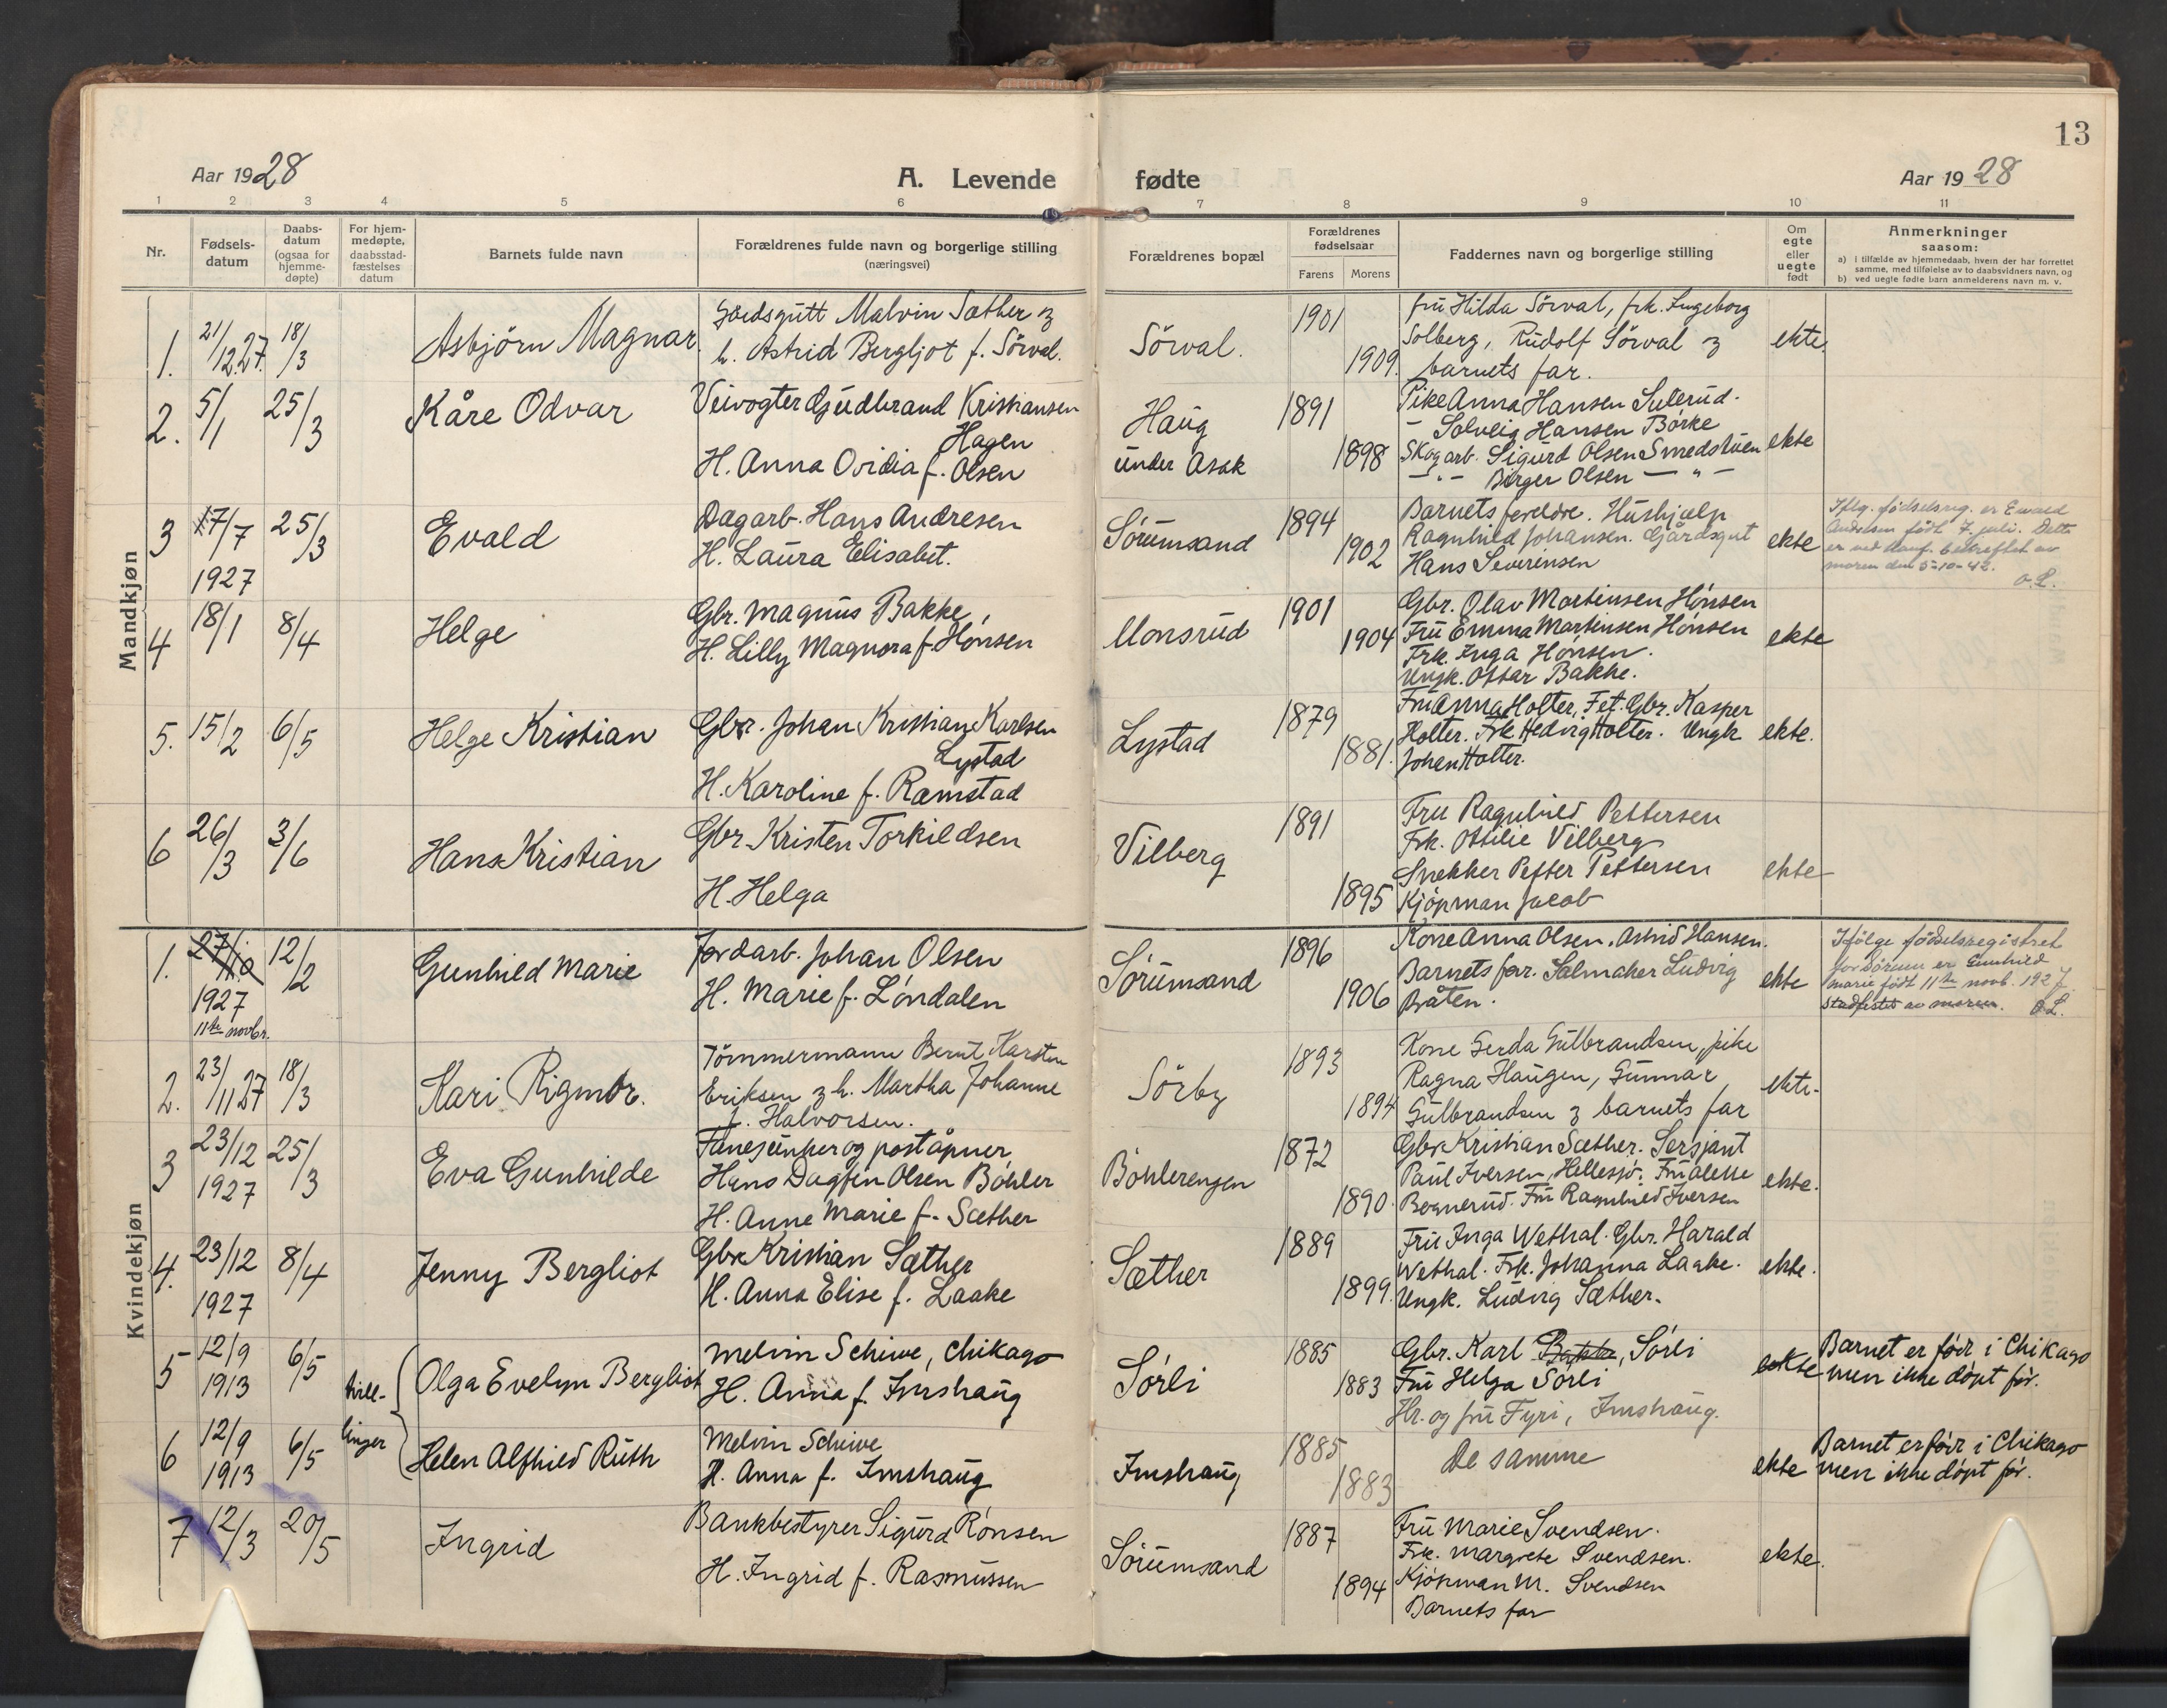 13
Aar 1928
A. Levende fødte
Aar 1928
1 2 3 4 5 6 7 8 9 10 11
Nr.
Fødsels-
datum
Daabs-
datum
(ogsaa for
hjemme-
døpte)
For hjem-
medøpte,
daabsstad-
fæstelses
datum
Barnets fulde navn
Forældrenes fulde navn og borgerlige stilling
(næringsvei)
Forældrenes bopæl
Forældrenes
fødselsaar
Farens Morens
Faddernes navn og borgerlige stilling
Om
egte
eller
uegte
født
Anmerkninger
saasom:
a) i tilfælde av hjemmedaab, hvem der har forrettet
samme, med tilføielse av to daabsvidners navn, og
b) ved uegte fødte barn anmelderens navn m. v.
Mandkjøn
1. 21/12.27. 18/3
Asbjörn Magnar.
Gårdsgutt Malvin Sæther og
h. Astrid Bergljot f. Sörval.
Sörval.
1901
1909.
fru Hilda Sörval, frk. Ingeborg
Solberg, Rudolf Sörval og
barnets far.
ekte.
2. 5/1 25/3
Kåre Odvar
Veivogter Gudbrand Kristiansen
Hagen
H. Anna Ovidia f. Olsen
Haug
under Asak
1891
1898
Pike Anna Hansen Suterud.
- Solveig Hansen Börke
Skogarb. Sigurd Olsen Smedstuen
-"- Birger Olsen -"-
ekte
3 17/7 25/3
1927
Evald
Dagarb. Hans Andresen
H. Laura Elisabet.
Sørumsand
1894
1902
Barnets foreldre. Hushjælp
Ragnhild Johansen. Gårdsgut
Hans Severinsen
ekte
Iflg. fødselsreg. er Ewald
Andresen født 7 juli. Dette
er ved konf. bekreftet av
moren den 5-10-42.
O.L.
4 18/1 8/4
Helge
Gbr. Magnus Bakke
H. Lilly Magnora f. Hónsen
Monsrud
1901
1904
Gbr. Olav Martinsen Hónsen
Fru Emma Martinsen Hónsen
Frk. Inga Hónsen.
Ungk. Ottar Bakke.
ekte
5. 15/2 6/5
Helge Kristian
Gbr. Johan Kristian Karlsen
Lystad
H. Karoline f. Ramstad
Lystad
1879
1881.
Fru Anna Holter, Fet. Gbr. Kasper
Holter. Frk. Hedvig Holter. Ungk
Johan Holter.
ekte.
6 26/3 3/6
Hans Kristian
Gbr. Kristen Torkildsen
H. Helga
Vilberg
1891
1895
Fru Ragnhild Pettersen
Frk. Ottilie Vilberg
Snekker Petter Pettersen
Kjöpman Jacob
ekte
Kvindekjøn
1. 27/10 12/2
1927
11te novbr.
Gunhild Marie
Jordarb. Johan Olsen
H. Marie f. Lóndalen
Sørumsand
1896
1906
Kone Anna Olsen. Astrid Hansen.
Barnets far. Salmaker Ludvig
Bråten.
ekte
Ifølge fødselsregistret
for Sørum er Gunhild
Marie født 11te novb. 1927.
stadfestet av moren. O.L.
2. 23/11 27 18/3
Kari Rigmor.
Tömmermann Bernt Karsten
Eriksen og h. Martha Johanne
f. Halvorsen.
Sörby
1893
1894
Kone Gerda Gulbrandsen, pike
Ragna Haugen, Gunnar
Gulbrandsen og barnets far
ekte.
3 23/12 25/3
1927
Eva Gunhilde
Fanejunker og poståpner
Hans Dagfin Olsen Bóhler
H. Anne Marie f. Sæther
Bóhlerengen
1872
1890.
Gbr Kristian Sæther. Sersjant
Paul Iversen, Hellesjó. Fru Alette
Bognerud. Fru Ragnhild Iversen
ekte.
4. 23/12 8/4
1927
Jenny Bergliot
Gbr Kristian Sæther
H. Anna Elise f. Laake
Sæther
1889
1899.
Fru Inga Wethal. Gbr. Harald
Wethal. Frk. Johanna Laake.
Ungk. Ludvig Sæther.
ekte.
5 12/9 6/5
1913
tvill-
Olga Evelyn Bergliot
Melvin Schiwe, Chikago
H. Anna f. Imshaug
Sórli
1885
1883
Gbr. Karl Sórli
Fru Helga Sórli
Hr. og fru Fyri, Imshaug.
ekte
Barnet er fódt i Chikago
men ikke dópt fór.
6 12/9 6/5
1913
linger
Helen Alfhild Ruth
Melvin Schiwe
H. Anna f. Imshaug
Imshaug
1885
1883
De samme
ekte
Barnet er fódt i Chikago
men ikke dópt fór.
7 12/3 20/5
Ingrid
Bankbestyrer Sigurd Rónsen
H. Ingrid f. Rasmussen
Sørumsand
1887
1894
Fru Marie Svendsen.
Frk. Margrete Svendsen.
Kjópman M. Svendsen
Barnets far
ekte.